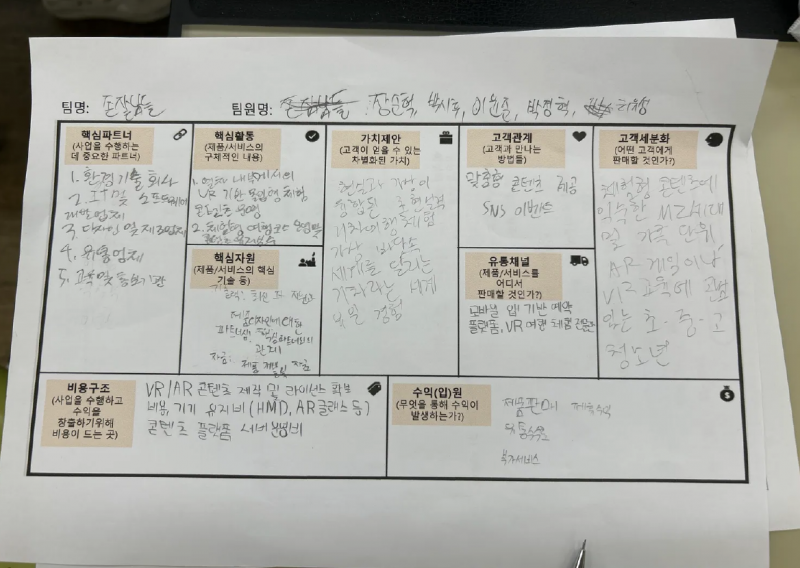 팀명:
팀원명: 장순혁, 박시후, 박경혁,
핵심파트너
(사업을 수행하는
데 중요한 파트너)
1. 환경 기술 회사
2. IT 및 소프트웨어
개발 업체
3. 디자인 및 제조업체
4. 유통업체
5. 교육 및 기관
핵심활동
(제품/서비스의
구체적인 내용)
1. 열차 내부에서의
VR 기반 체험
2. 체험형
핵심자원
(제품/서비스의 핵심
기술 등)
파트너십,
관리
자금: 제품 개발 및 자금
가치제안
(고객이 얻을 수 있는
차별화된 가치)
현실과 가상이
융합된
기차여행 체험
가상 바닷속
세계를 달리는
기차라는 세계
경험
고객관계
(고객과 만나는
방법들)
맞춤형 콘텐츠 제공
SNS 이벤트
유통채널
(제품/서비스를
어디서
판매할 것인가?)
모바일 앱 기반 예약
플랫폼, VR 여행 체험
고객세분화
(어떤 고객에게
판매할 것인가?)
체험형 콘텐츠에
익숙한 MZ세대
및 가족 단위,
AR 게임이나
VR 교육에 관심
있는 초·중·고
청소년
비용구조
(사업을 수행하고
수익을
창출하기위해
비용이 드는 곳)
VR/AR 콘텐츠 제작 및 라이선스 확보
비용, 기기 유지비(HMD, AR글래스 등)
콘텐츠 플랫폼 서버 운영비
수익(입)원
(무엇을 통해 수익이
발생하는가?)
제품판매
부가서비스